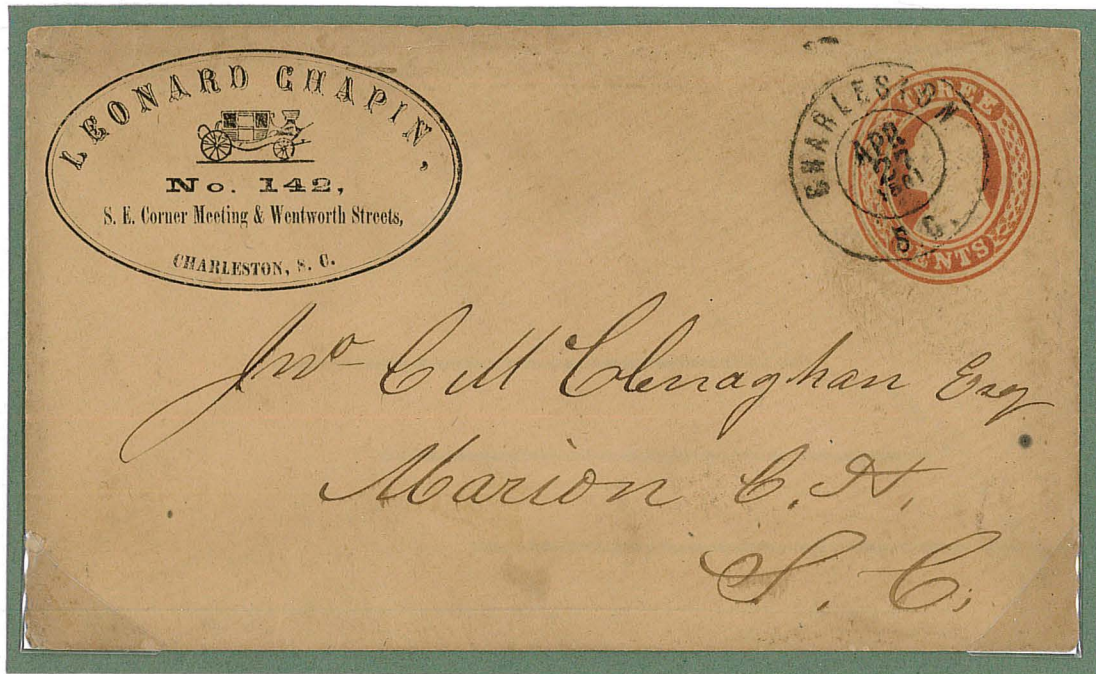 LEONARD CHAPIN,
No. 142,
S. E. Corner Meeting & Wentworth Streets,
CHARLESTON, S. C.
CHARLESTON
APR
27
1861
S C.
THREE
CENTS
Jno C McClenaghan Esq
Marion C. H.
S. C.